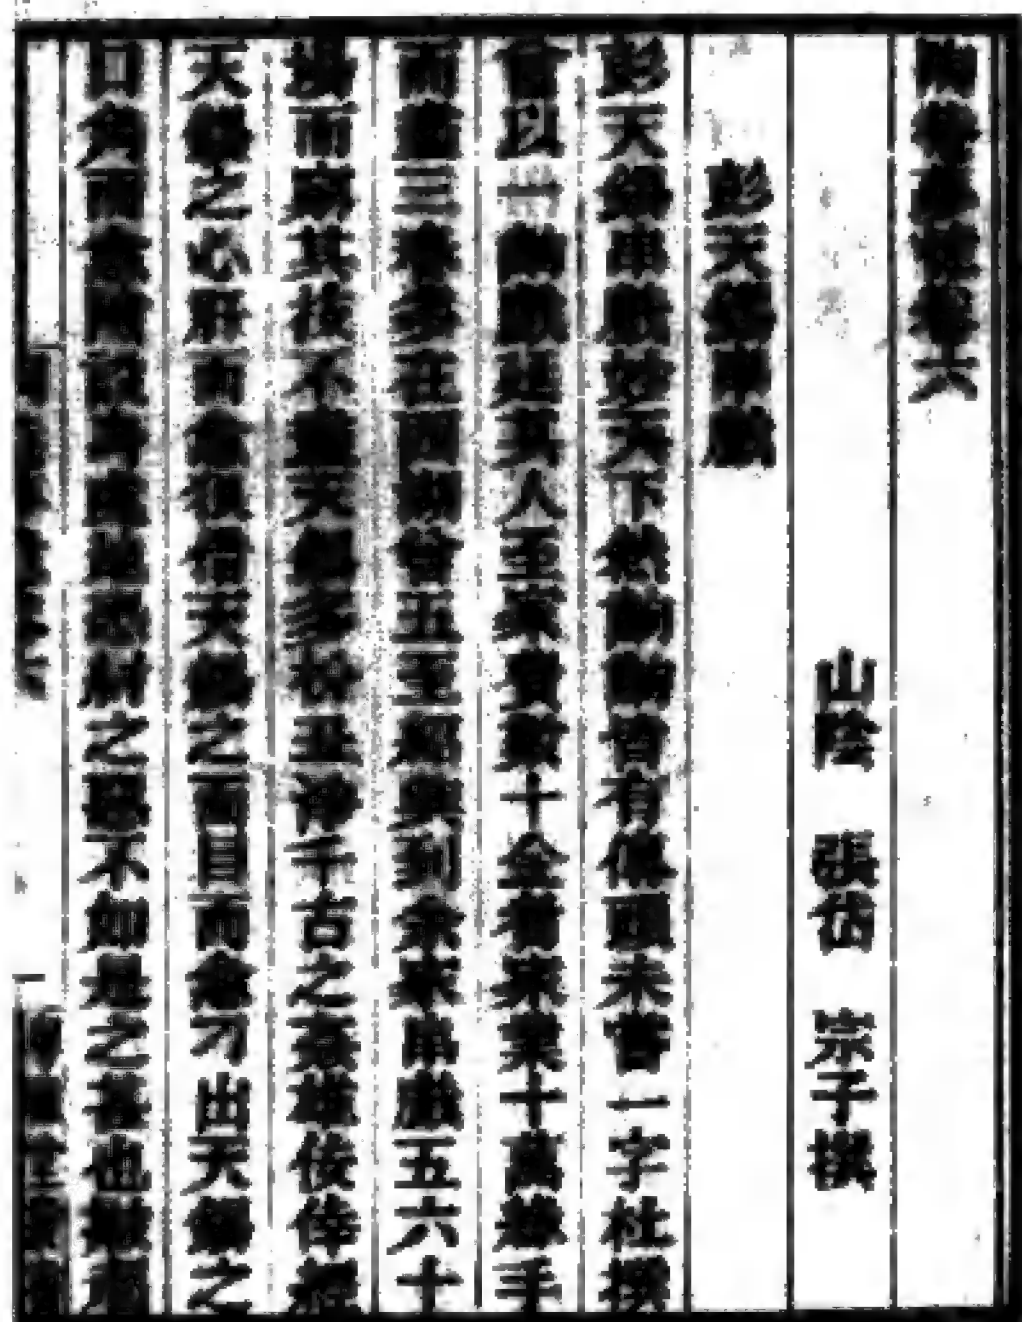 陶庵夢憶卷六
山陰 張岱 宗子撰
彭天錫串戲
彭天錫串戲妙天下然齣齣皆有傳頭未嘗一字杜撰
曾以一齣戲延其人至家費數十金者家業十萬緣手
而盡三春多在西湖曾五至紹興到余家串戲五六十
場而窮其技不盡天錫多扮丑淨千古之奸雄佞倖經
天錫之心肝而愈狠借天錫之面目而愈刁出天錫之
口角而愈險設身處地恐紂之惡不如是之甚也皺眉